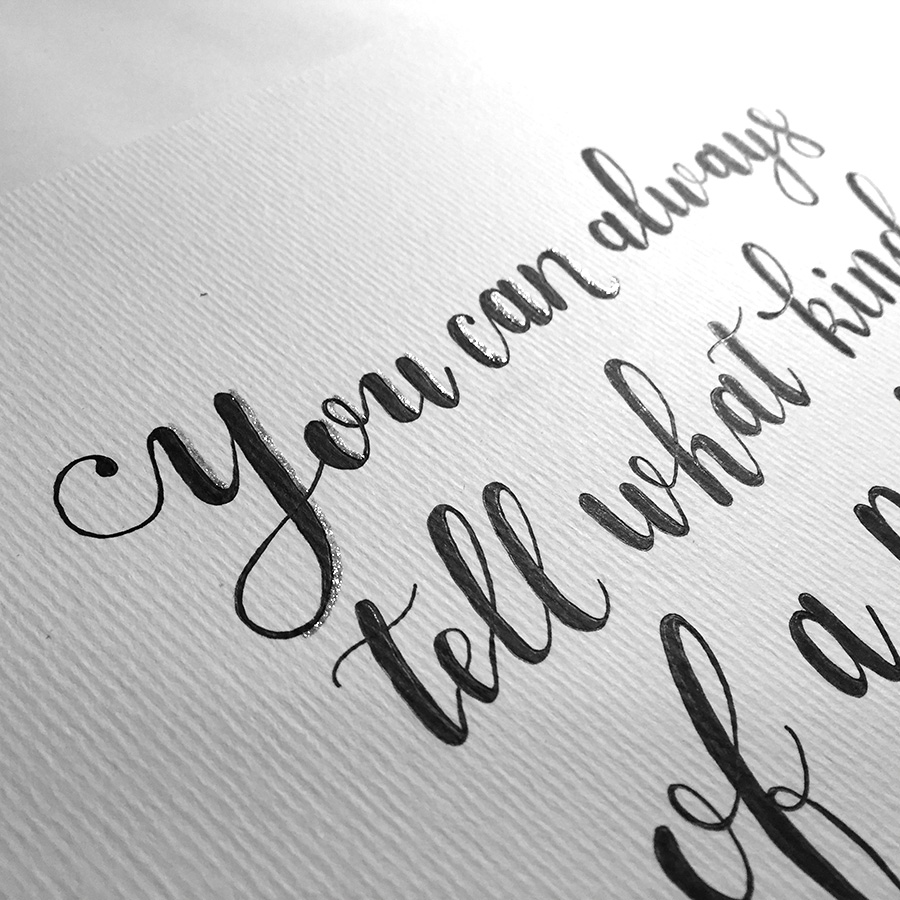 You can always
tell what kind
of a